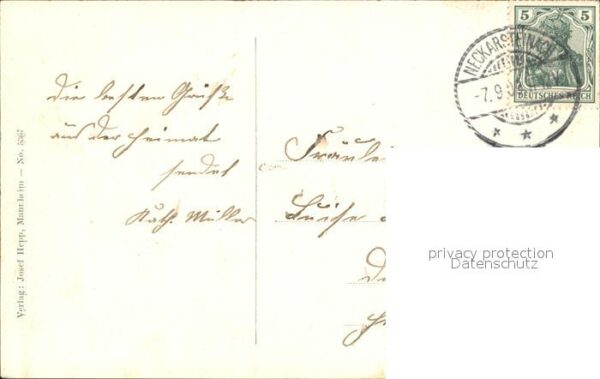 5 5
DEUTSCHES REICH
NECKARSTEINACH
-7.9.
Die besten Grüße
aus der Heimat
sendet
Kath. Müller
Fräulein
Luise
Verlag: Josef Hepp, Mannheim — No.
privacy protection
Datenschutz